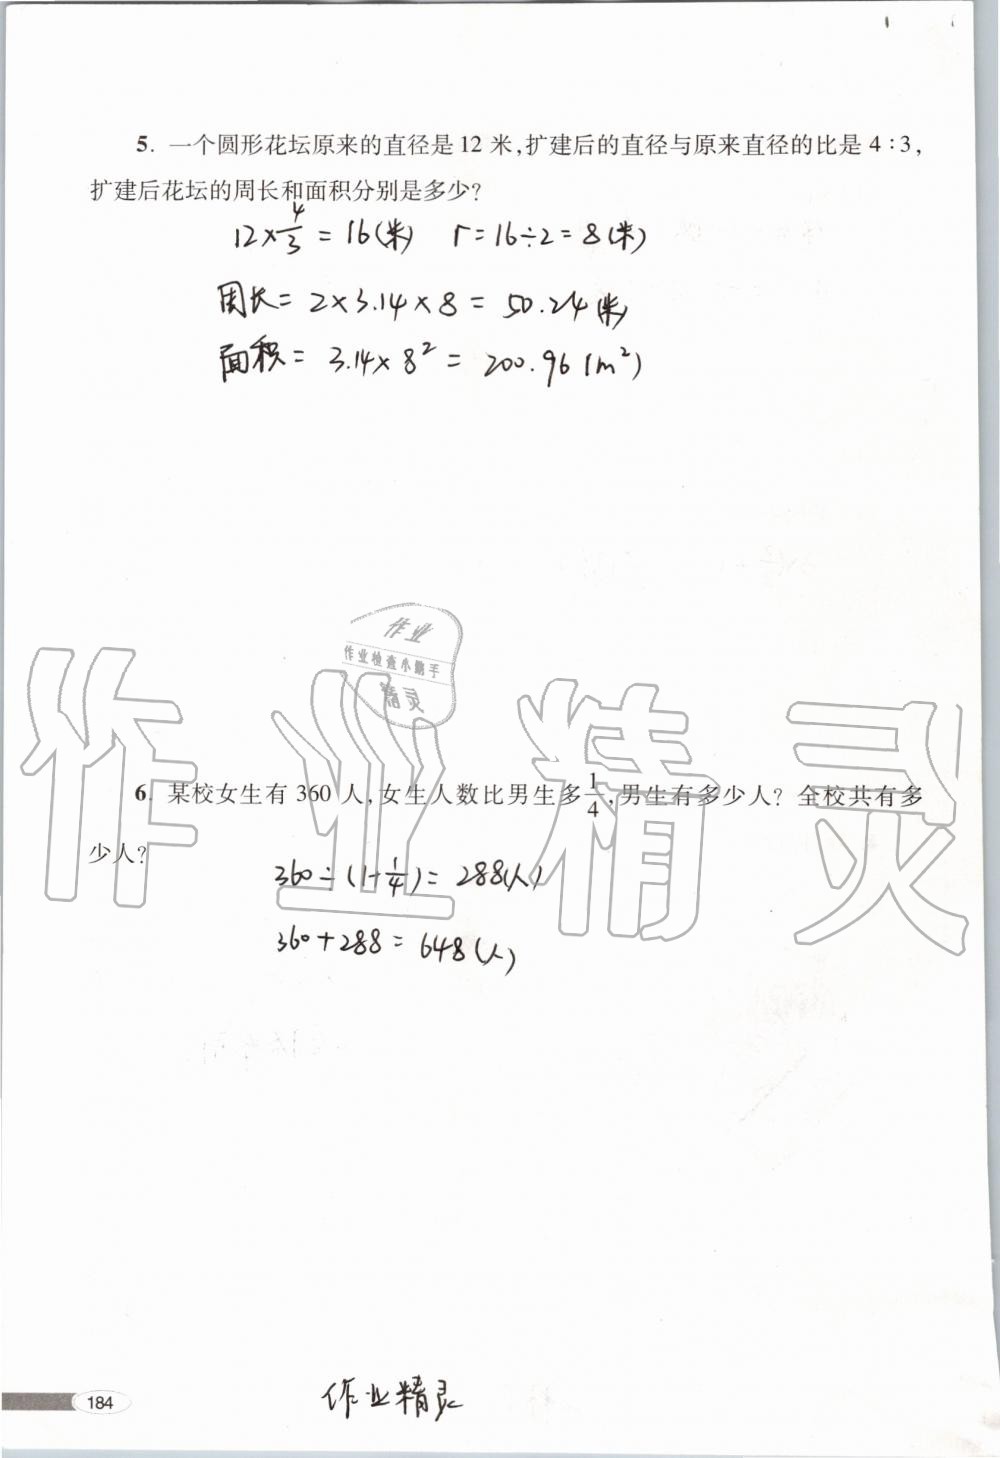 5. 一个圆形花坛原来的直径是12米,扩建后的直径与原来直径的比是4:3,
扩建后花坛的周长和面积分别是多少?
12×4/3=16(米) r=16÷2=8(米)
周长=2×3.14×8=50.24(米)
面积=3.14×8²=200.96(m²)
作业
作业检查小帮手
精灵
作业精灵
6. 某校女生有360人,女生人数比男生多1/4,男生有多少人?全校共有多
少人?
360÷(1-1/4)=288(人)
360+288=648(人)
184
作业精灵